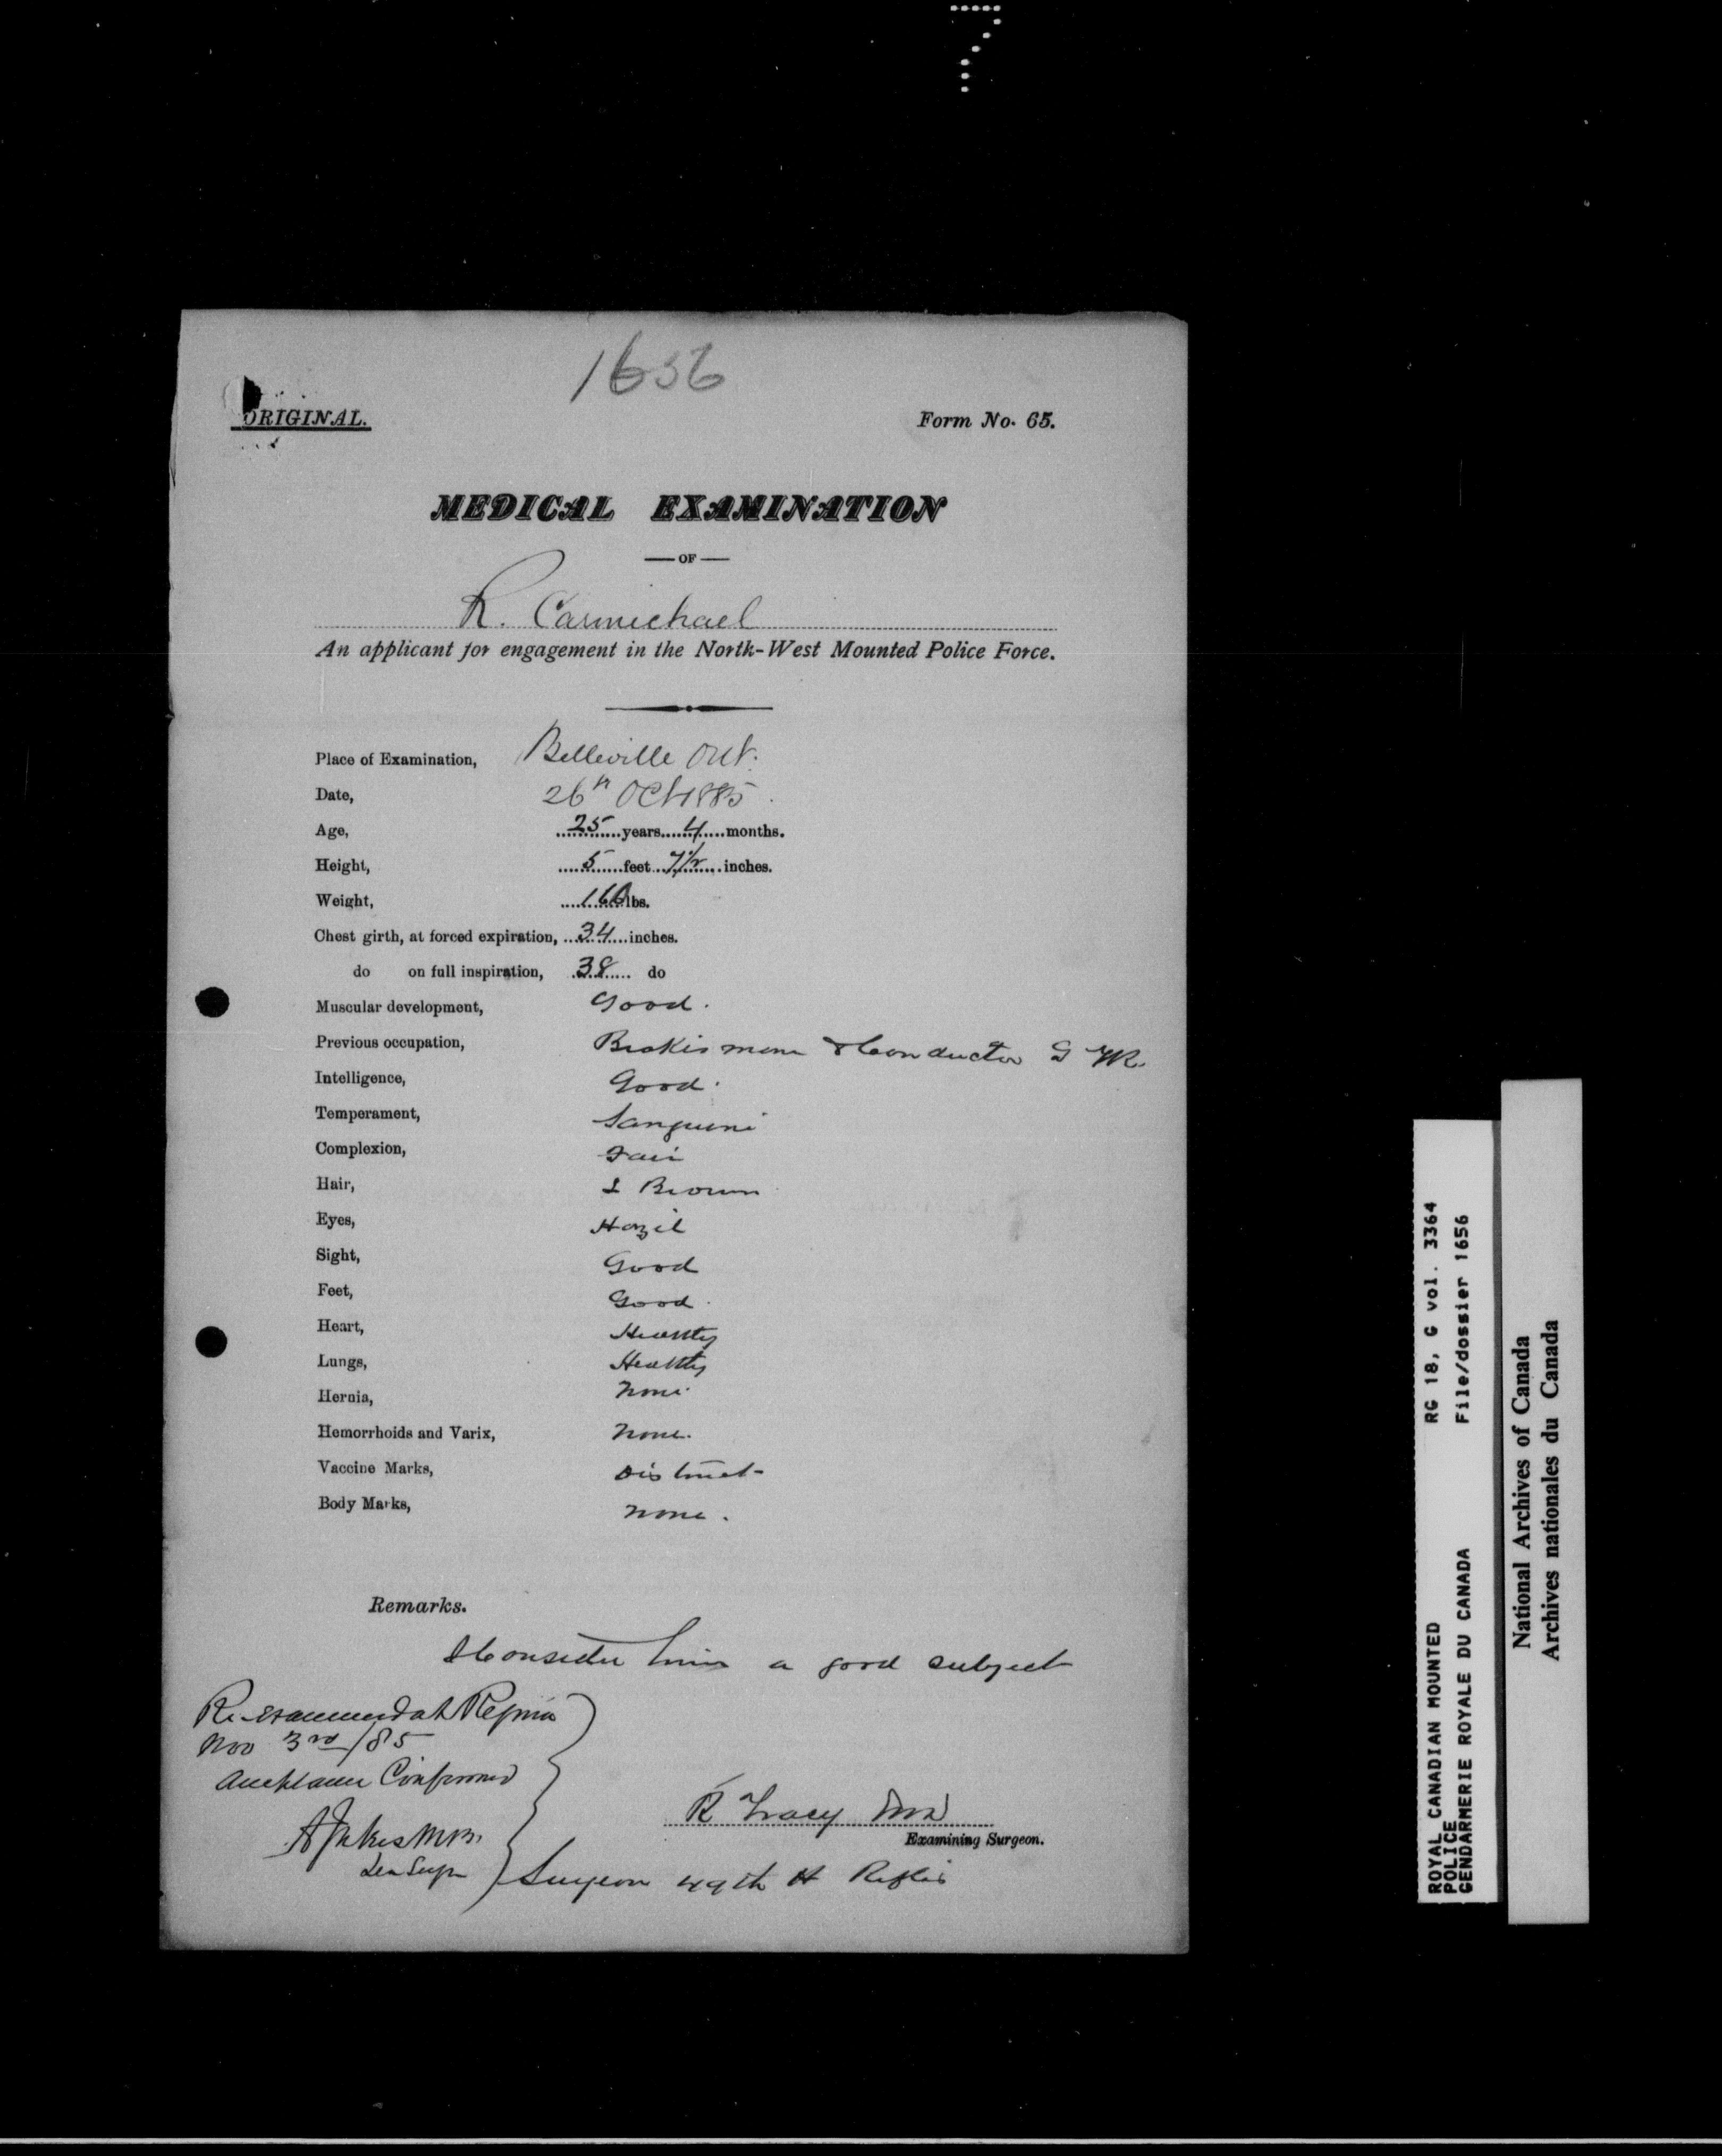 7
1656
ORIGINAL.
Form No. 65.
MEDICAL EXAMINATION
— OF —
R. Carmichael
An applicant for engagement in the North-West Mounted Police Force.
Place of Examination, Belleville Ont.
Date, 26th Oct 1885.
Age, 25 years 4 months.
Height, 5 feet 7 1/2 inches.
Weight, 160 lbs.
Chest girth, at forced expiration, 34 inches.
do on full inspiration, 38 do
Muscular development, Good.
Previous occupation, Brakisman & Conductor G T R.
Intelligence, Good.
Temperament, Sanguine
Complexion, Fair
Hair, L Brown
Eyes, Hazil
Sight, Good
Feet, Good.
Heart, Healthy
Lungs, Healthy
Hernia, None.
Hemorrhoids and Varix, None.
Vaccine Marks, Distinct
Body Marks, None.
Remarks.
I Consider him a good subject
Re-examined at Regina
Nov 3rd/85
Acceptance Confirmed
A Jukes M.B.
Sen Surgn
R Tracy MD
Examining Surgeon.
Surgeon 49th H Rifles
ROYAL CANADIAN MOUNTED
POLICE
GENDARMERIE ROYALE DU CANADA
RG 18, G vol. 3364
File/dossier 1656
National Archives of Canada
Archives nationales du Canada